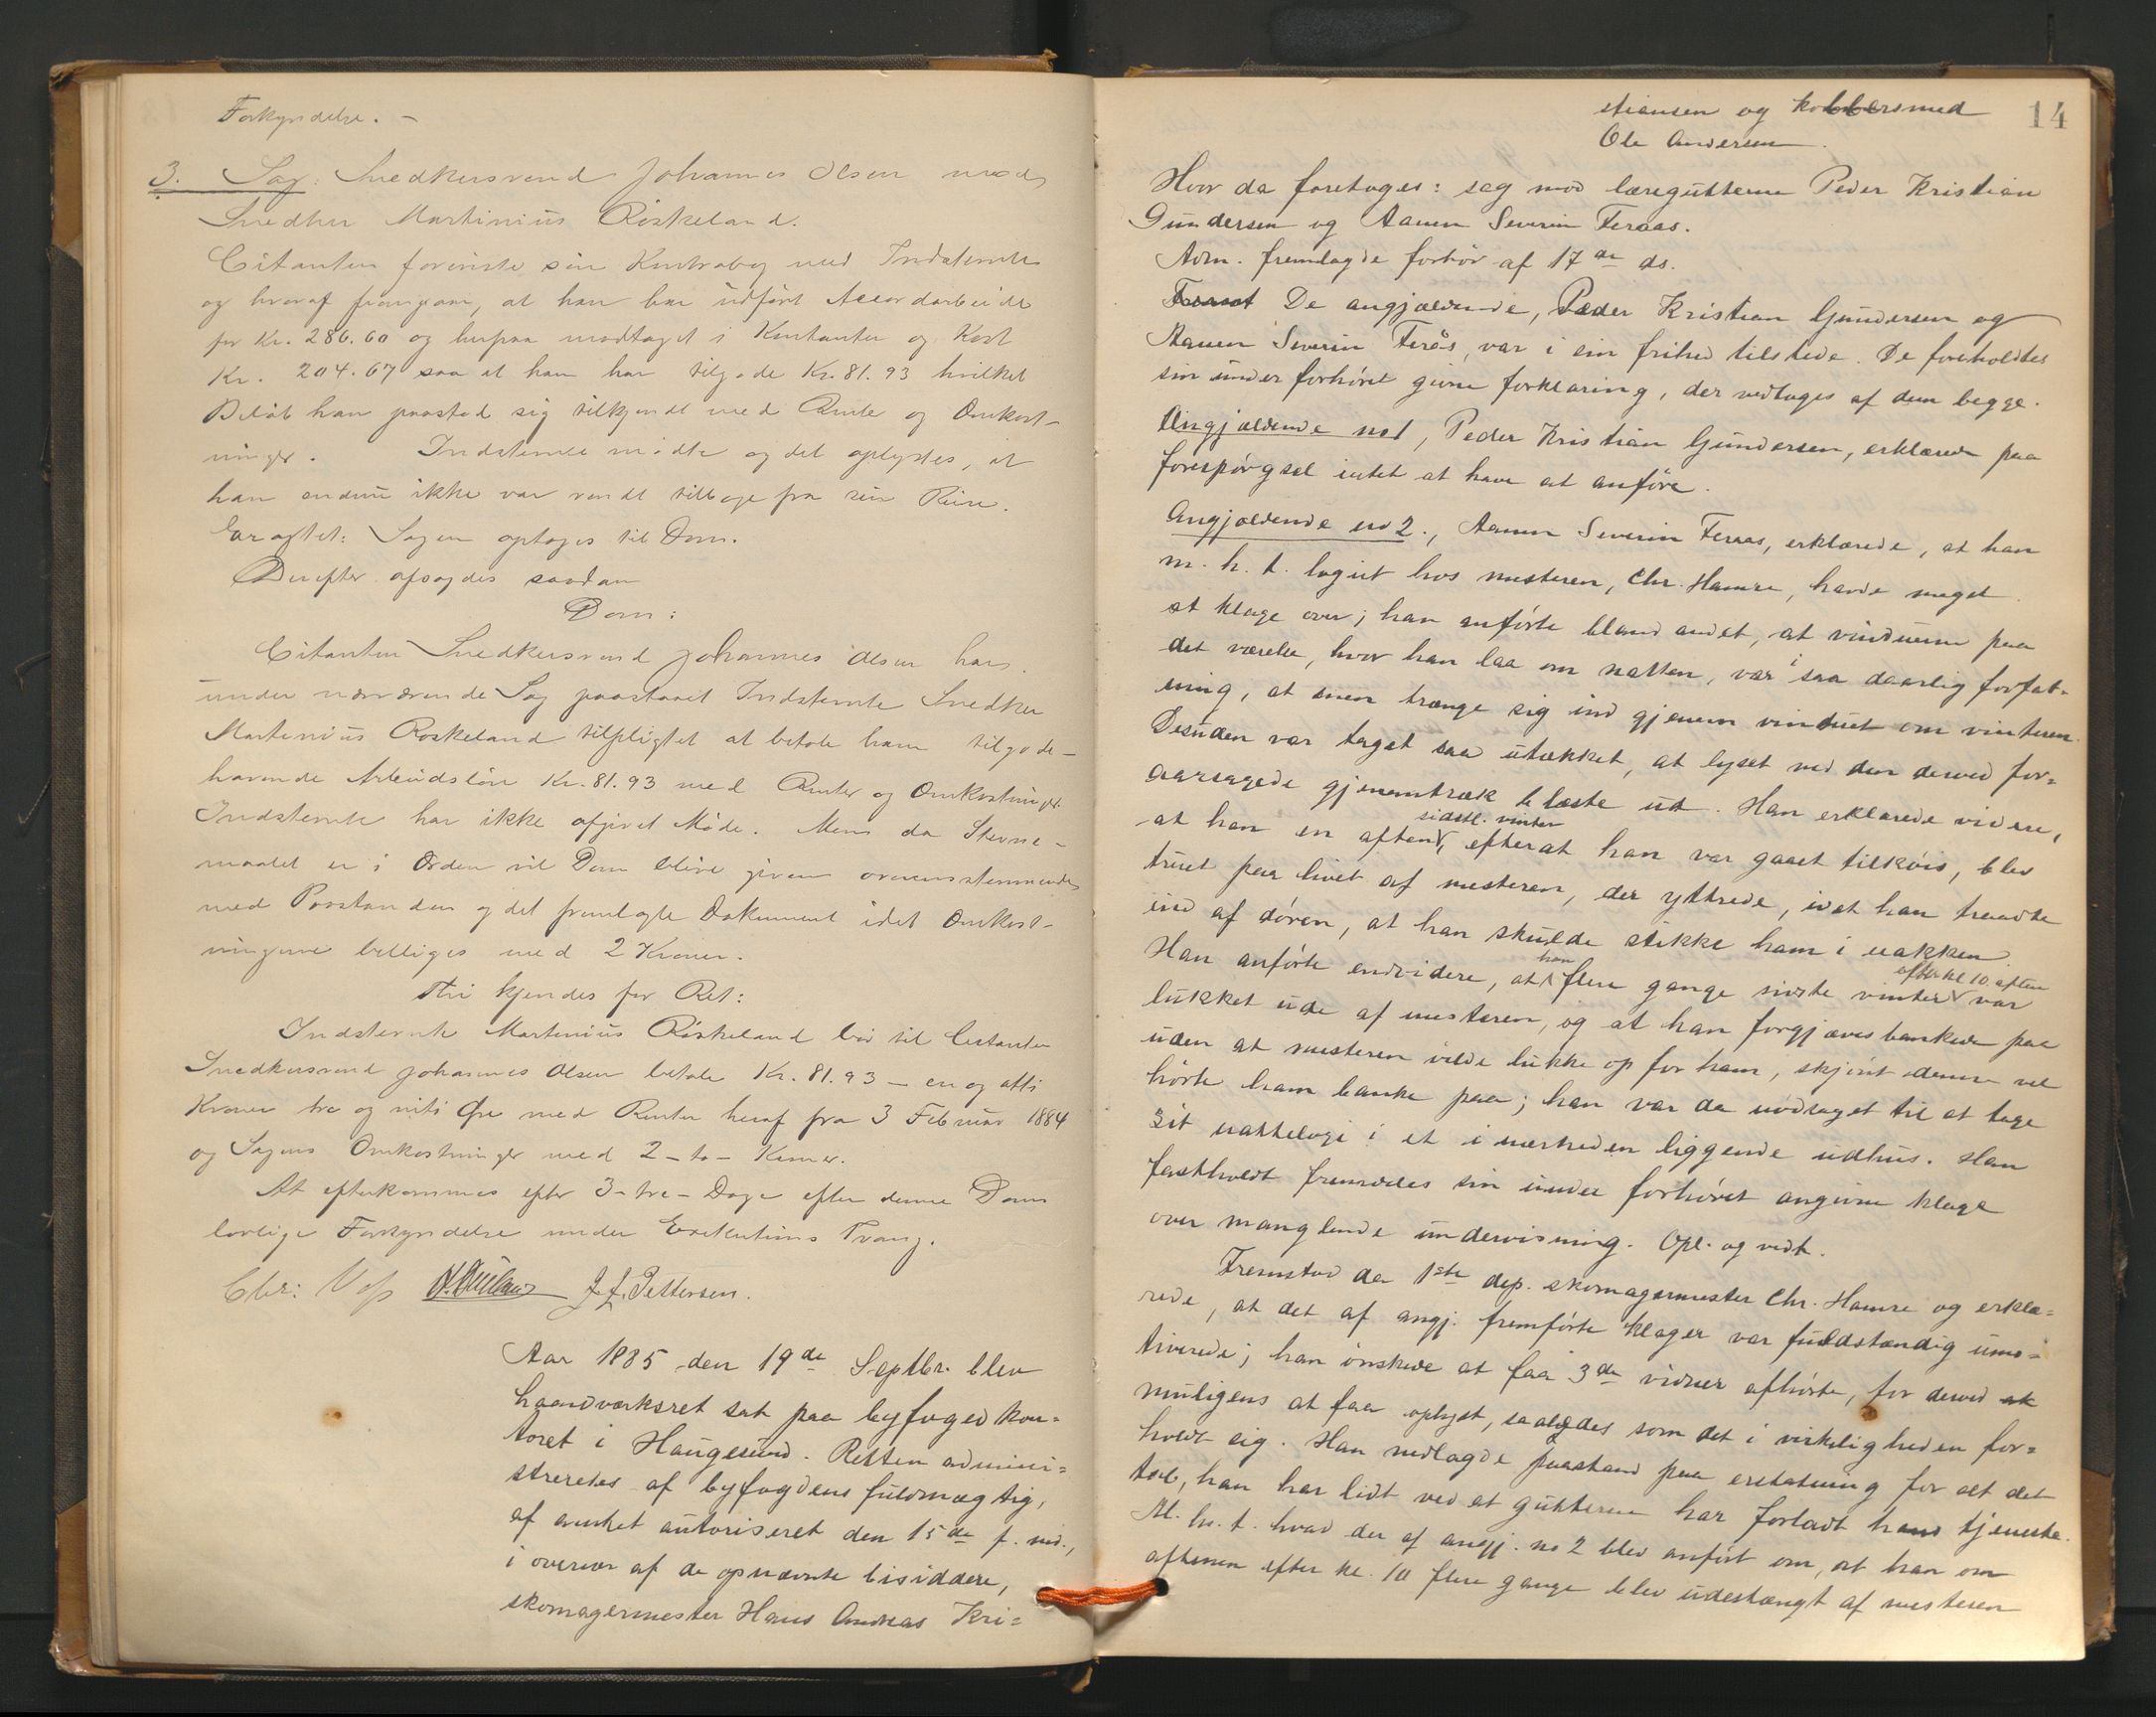 Forkyndelse. -
3. Sag: Snedkersvend Johannes Olsen mod
Snedker Martinius Röskeland.
Citanten foreviste sin Kontrabog med Indstemte
og hvoraf fremgaar, at han har udført Accordarbeide
for Kr. 286.60 og herpaa modtaget i Kontanter og Kost
Kr. 204.67 saa at han har tilgode Kr. 81.93 hvilket
Beløb han paastod sig tilkjendt med Renter og Omkost-
ninger. Indstemte mødte og det oplystes, at
han endnu ikke var vendt tilbage fra sin Reise.
Eragtet: Sagen optages til Dom.
Derefter afsagdes saadan
Dom:
Citanten Snedkersvend Johannes Olsen har
under nærværende Sag paastaaet Indstemte Snedker
Martinius Røskeland tilpligtet at betale ham tilgode-
havende Arbeidsløn Kr. 81.93 med Renter og Omkostninger.
Indstemte har ikke afgivet Møde. Men da Stevne-
maalet er i Orden vil Dom blive given overensstemmende
med Paastanden og det fremlagte Dokument idet Omkost-
ningerne billiges med 2 Kroner.
Thi kjendes for Ret:
Indstemte Martinius Röskeland bør til Citanten
Snedkersvend Johannes Olsen betale Kr. 81.93 - en og otti
Kroner tre og niti Øre med Renter heraf fra 3 Februar 1884
og Sagens Omkostninger med 2 - to - Kroner.
At efterkommes efter 3 - tre - Dage efter denne Doms
lovlige Forkyndelse under Exekutions Tvang.
J. J. Pettersen.
Aar 1885 den 19de Septbr. blev
haandværksret sat paa byfogedkon=
toret i Haugesund. Retten admini=
streredes af byfogdens fuldmægtig,
af amtet autoriseret den 15de f. md.,
i overvær af de opnævnte bisiddere,
skomagermester Hans Andreas Kri=
14
stiansen og kobbersmed
Ole Andersen.
Hvor da foretoges: sag mod læregutterne Peder Kristian
Gundersen og Aanen Severin Feraas.
Adm. fremlagde forhör af 17de ds.
De angjældende, Peder Kristian Gundersen og
Aanen Severin Ferås, var i sin frihed tilstede. De foreholdtes
sin under forhöret givne forklaring, der vedtoges af dem begge.
Angjældende no 1, Peder Kristian Gundersen, erklærede paa
forespörgsel intet at have at anföre.
Angjældende no 2., Aanen Severin Feraas, erklærede, at han
m. h. t. logiet hos mesteren, Chr. Hamre, havde meget
at klage over; han anförte bland andet, at vinduerne paa
det værelse, hvor han laa om natten, var i saa daarlig forfat=
ning, at sneen trænge sig ind gjennem vinduet om vinteren.
Desuden var taget saa utækket, at lyset ved den derved for=
aarsagede gjennemtræk blæste ud. Han erklærede videre,
at han en aften sidstl. vinter, efterat han var gaaet tilköis, blev
truet paa livet af mesteren, der yttrede, idet han traadte
ind af dören, at han skulde stikke ham i nakken.
Han anförte endvidere, at han flere gange sidste vinter efter kl 10 aften var
lukket ude af mesteren, og at han forgjæves bankede paa
uden at mesteren vilde lukke op for ham, skjönt denne vel
hörte ham banke paa; han var da nödsaget til at tage
sit natteloge i et i nærheden liggende udhus. Han
fastholdt fremdeles sin under forhöret angivne klage
over manglende undervisning. Opl. og vedt.
Fremstod da 1ste dep. skomagermester Chr. Hamre og erklæ=
rede, at det af angj. fremförte klager var fuldstændig umo=
tiverede; han önskede at faa 3de vidner afhörte, for derved
muligens at faa oplyst, saaledes som det i virkeligheden for=
holdt sig. Han nedlagde paastand paa erstatning for alt det
tab, han har lidt ved at gutterne har forladt hans tjeneste.
M. h. t. hvad der af angj. no 2 blev anfört om, at han om
aftenen efter kl. 10 flere gange blev udestængt af mesteren